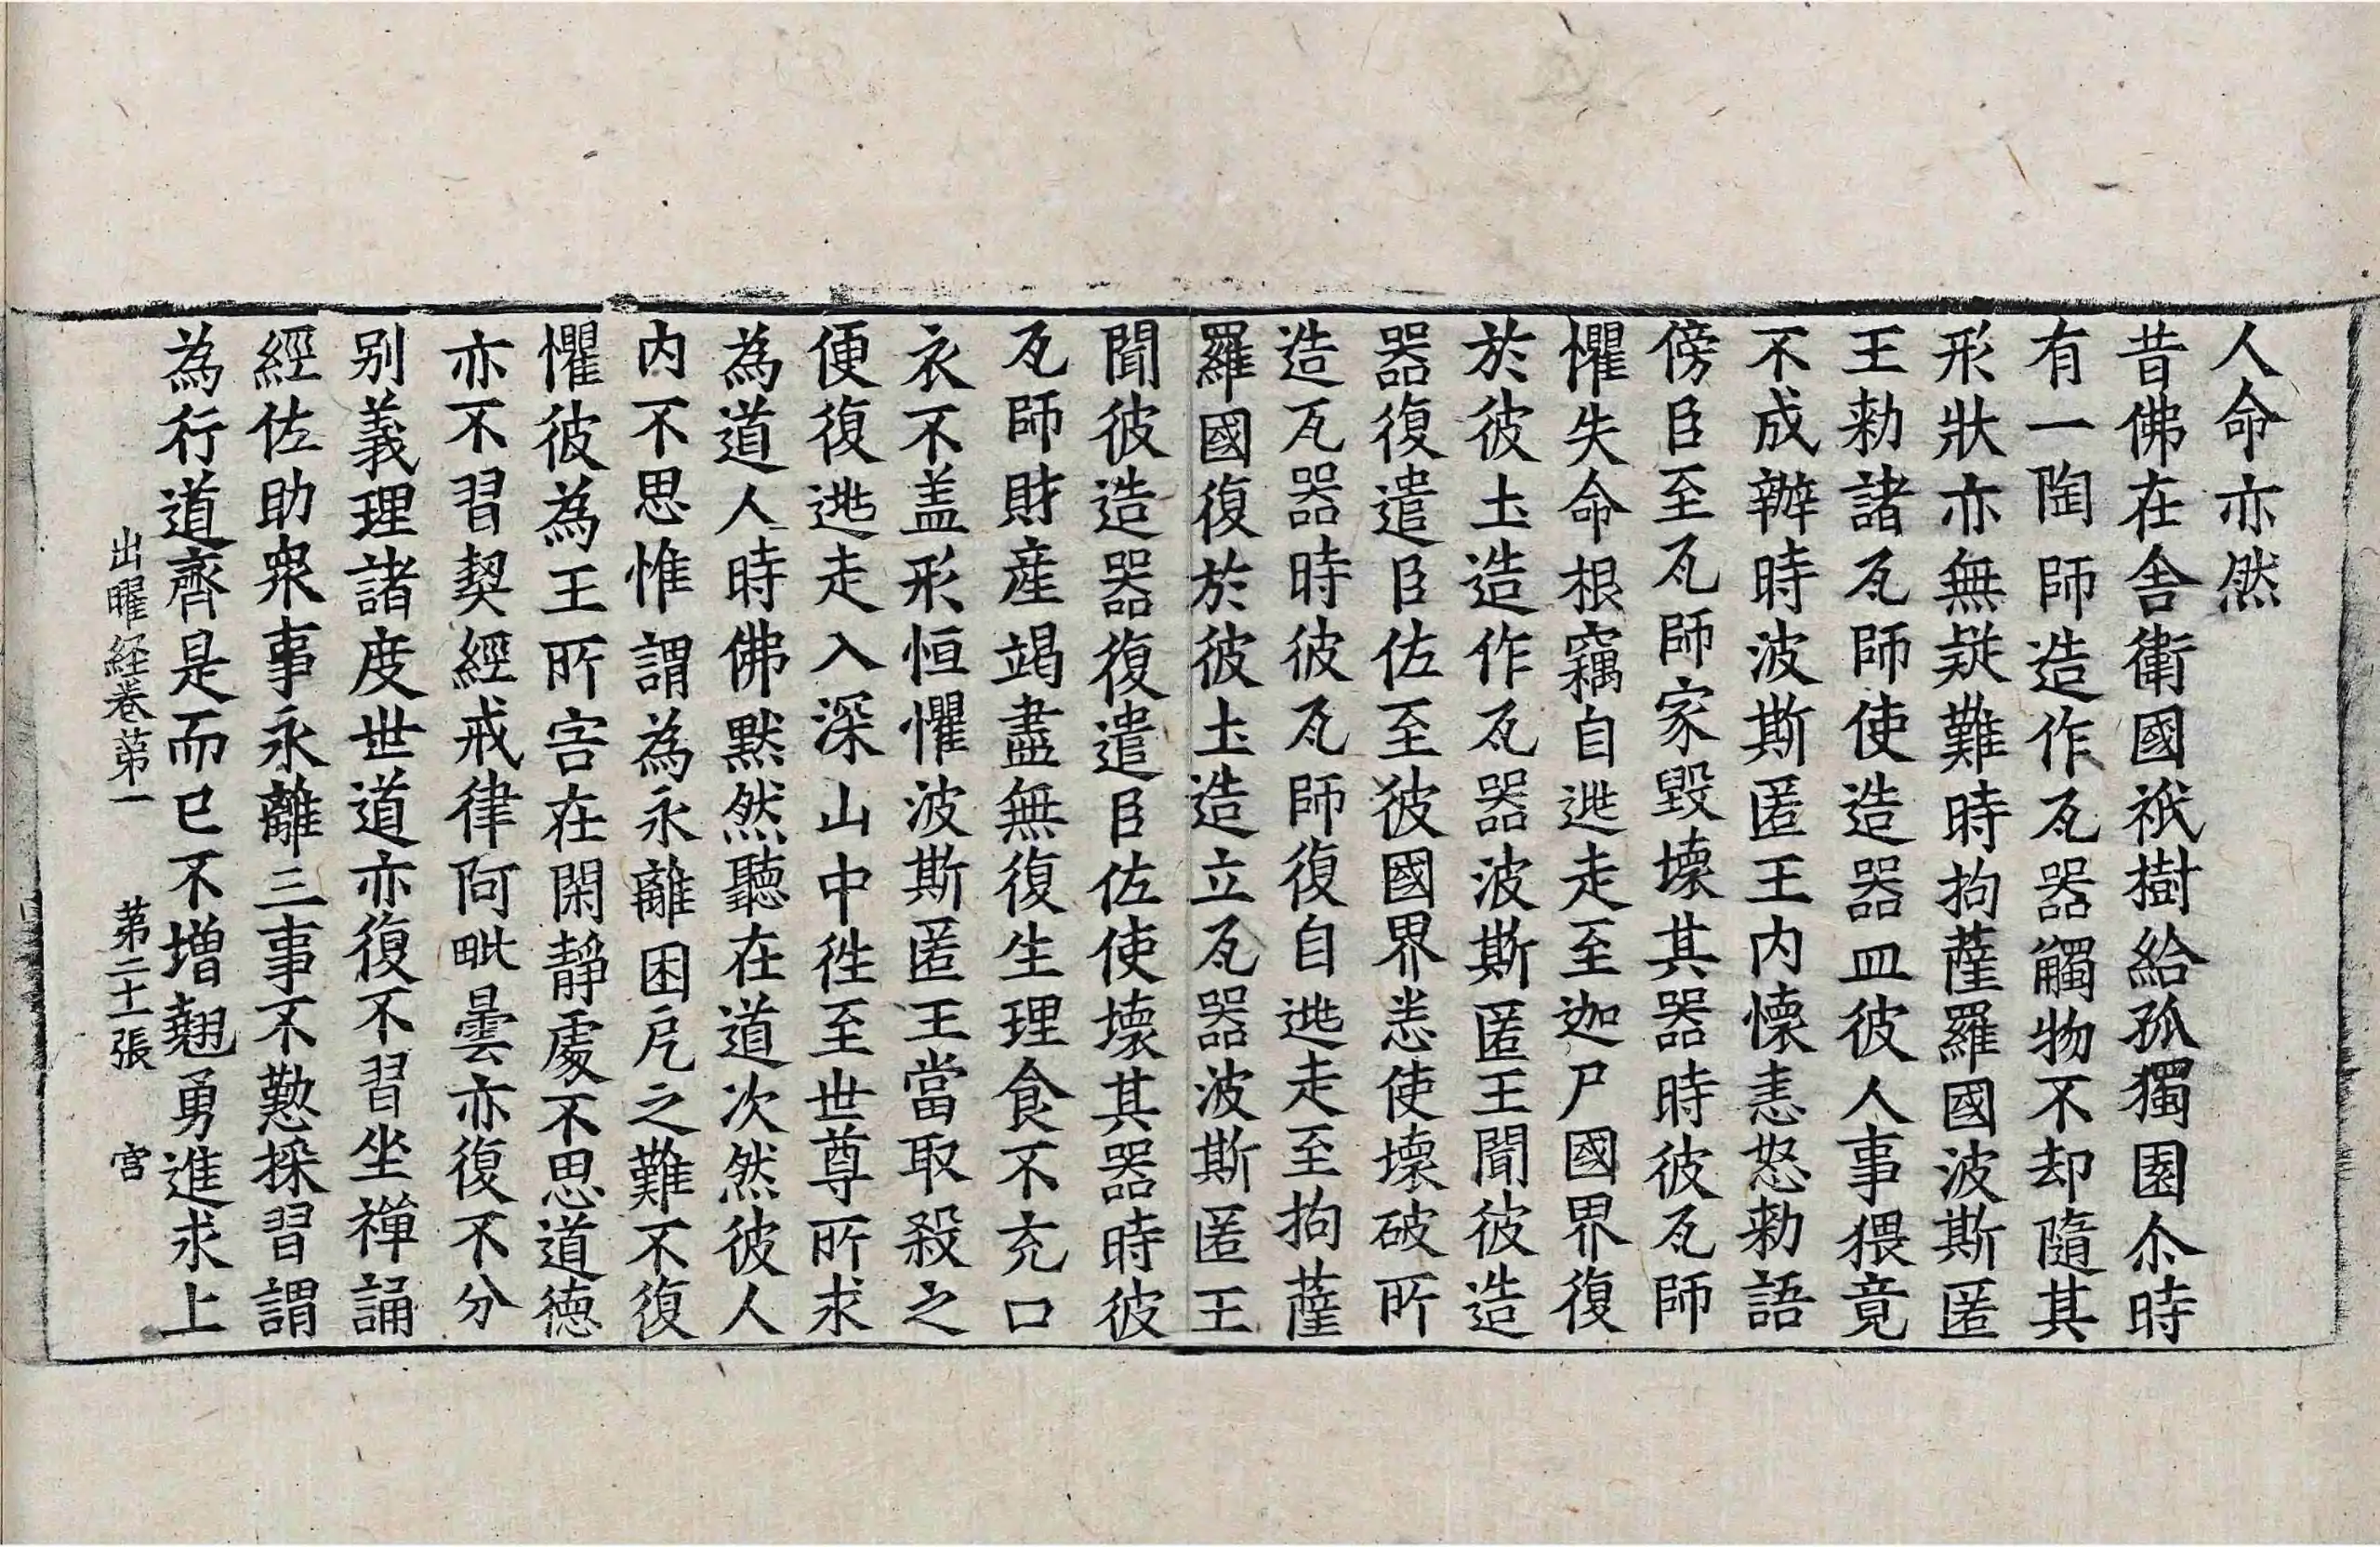 人命亦然
昔佛在舍衛國祇樹給孤獨園尒時
有一陶師造作瓦器觸物不却隨其
形狀亦無疑難時拘薩羅國波斯匿
王勑諸瓦師使造器皿彼人事猥竟
不成辦時波斯匿王内懷恚怒勑語
傍臣至瓦師家毀壞其器時彼瓦師
懼失命根竊自逃走至迦尸國界復
於彼土造作瓦器波斯匿王聞彼造
器復遣臣佐至彼國界恙使壞破所
造瓦器時彼瓦師復自逃走至拘薩
羅國復於彼土造立瓦器波斯匿王
聞彼造器復遣臣佐使壞其器時彼
瓦師財産竭盡無復生理食不充口
衣不盖形恒懼波斯匿王當取殺之
便復逃走入深山中徃至世尊所求
為道人時佛默然聽在道次然彼人
内不思惟謂為永離困戹之難不復
懼彼為王所害在閑靜處不思道德
亦不習契經戒律阿毗曇亦復不分
别義理諸度世道亦復不習坐禪誦
經佐助衆事永離三事不懃採習謂
為行道齊是而已不增翹勇進求上
出曜経卷苐一 苐二十張 宫